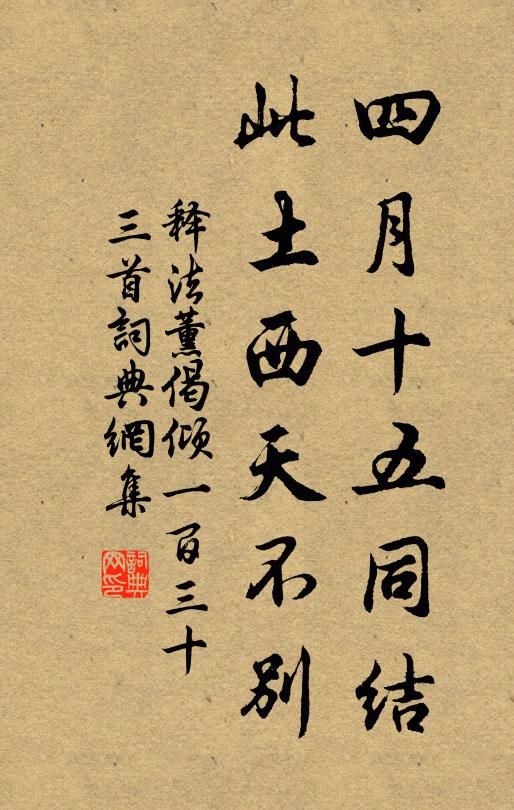 四月十五同结
此土西天不别
释法薰偈倾一百三十
三首詞典網集
詞典
网印